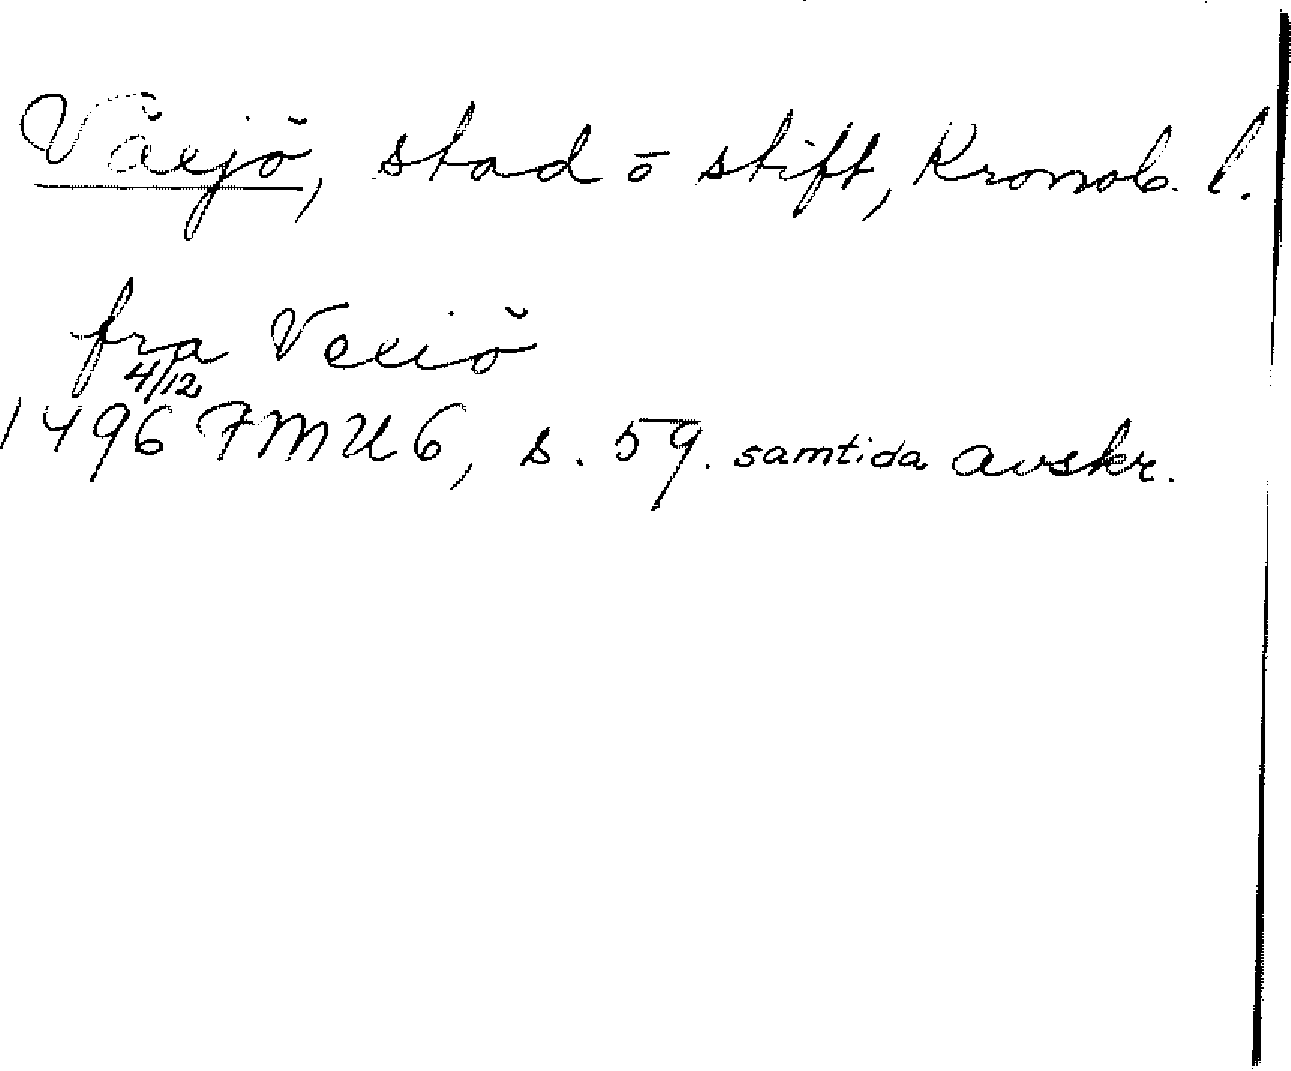 Växjö, stad o stift, Kronob. l.
fra Vexiö
4/12
1496 FMU 6, s. 59. samtida avskr.